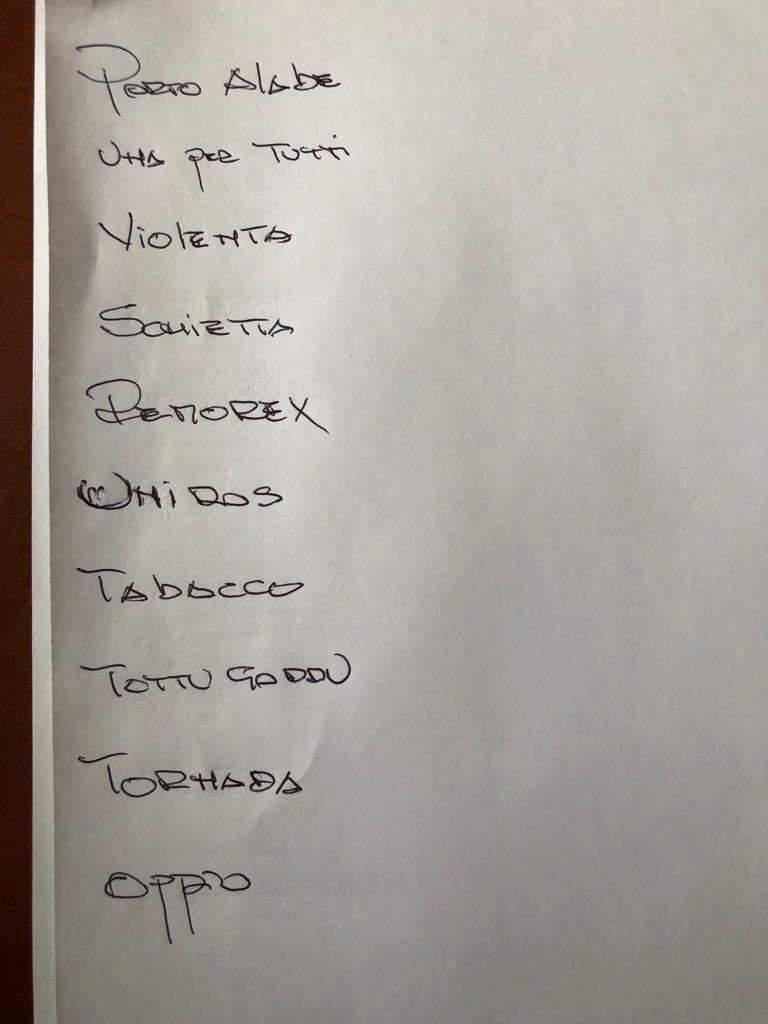 Porto Alabe
Una per Tutti
Violenta
Schietta
Remorex
Unidos
Tabacco
Tottu Goddu
Tornada
Oppio